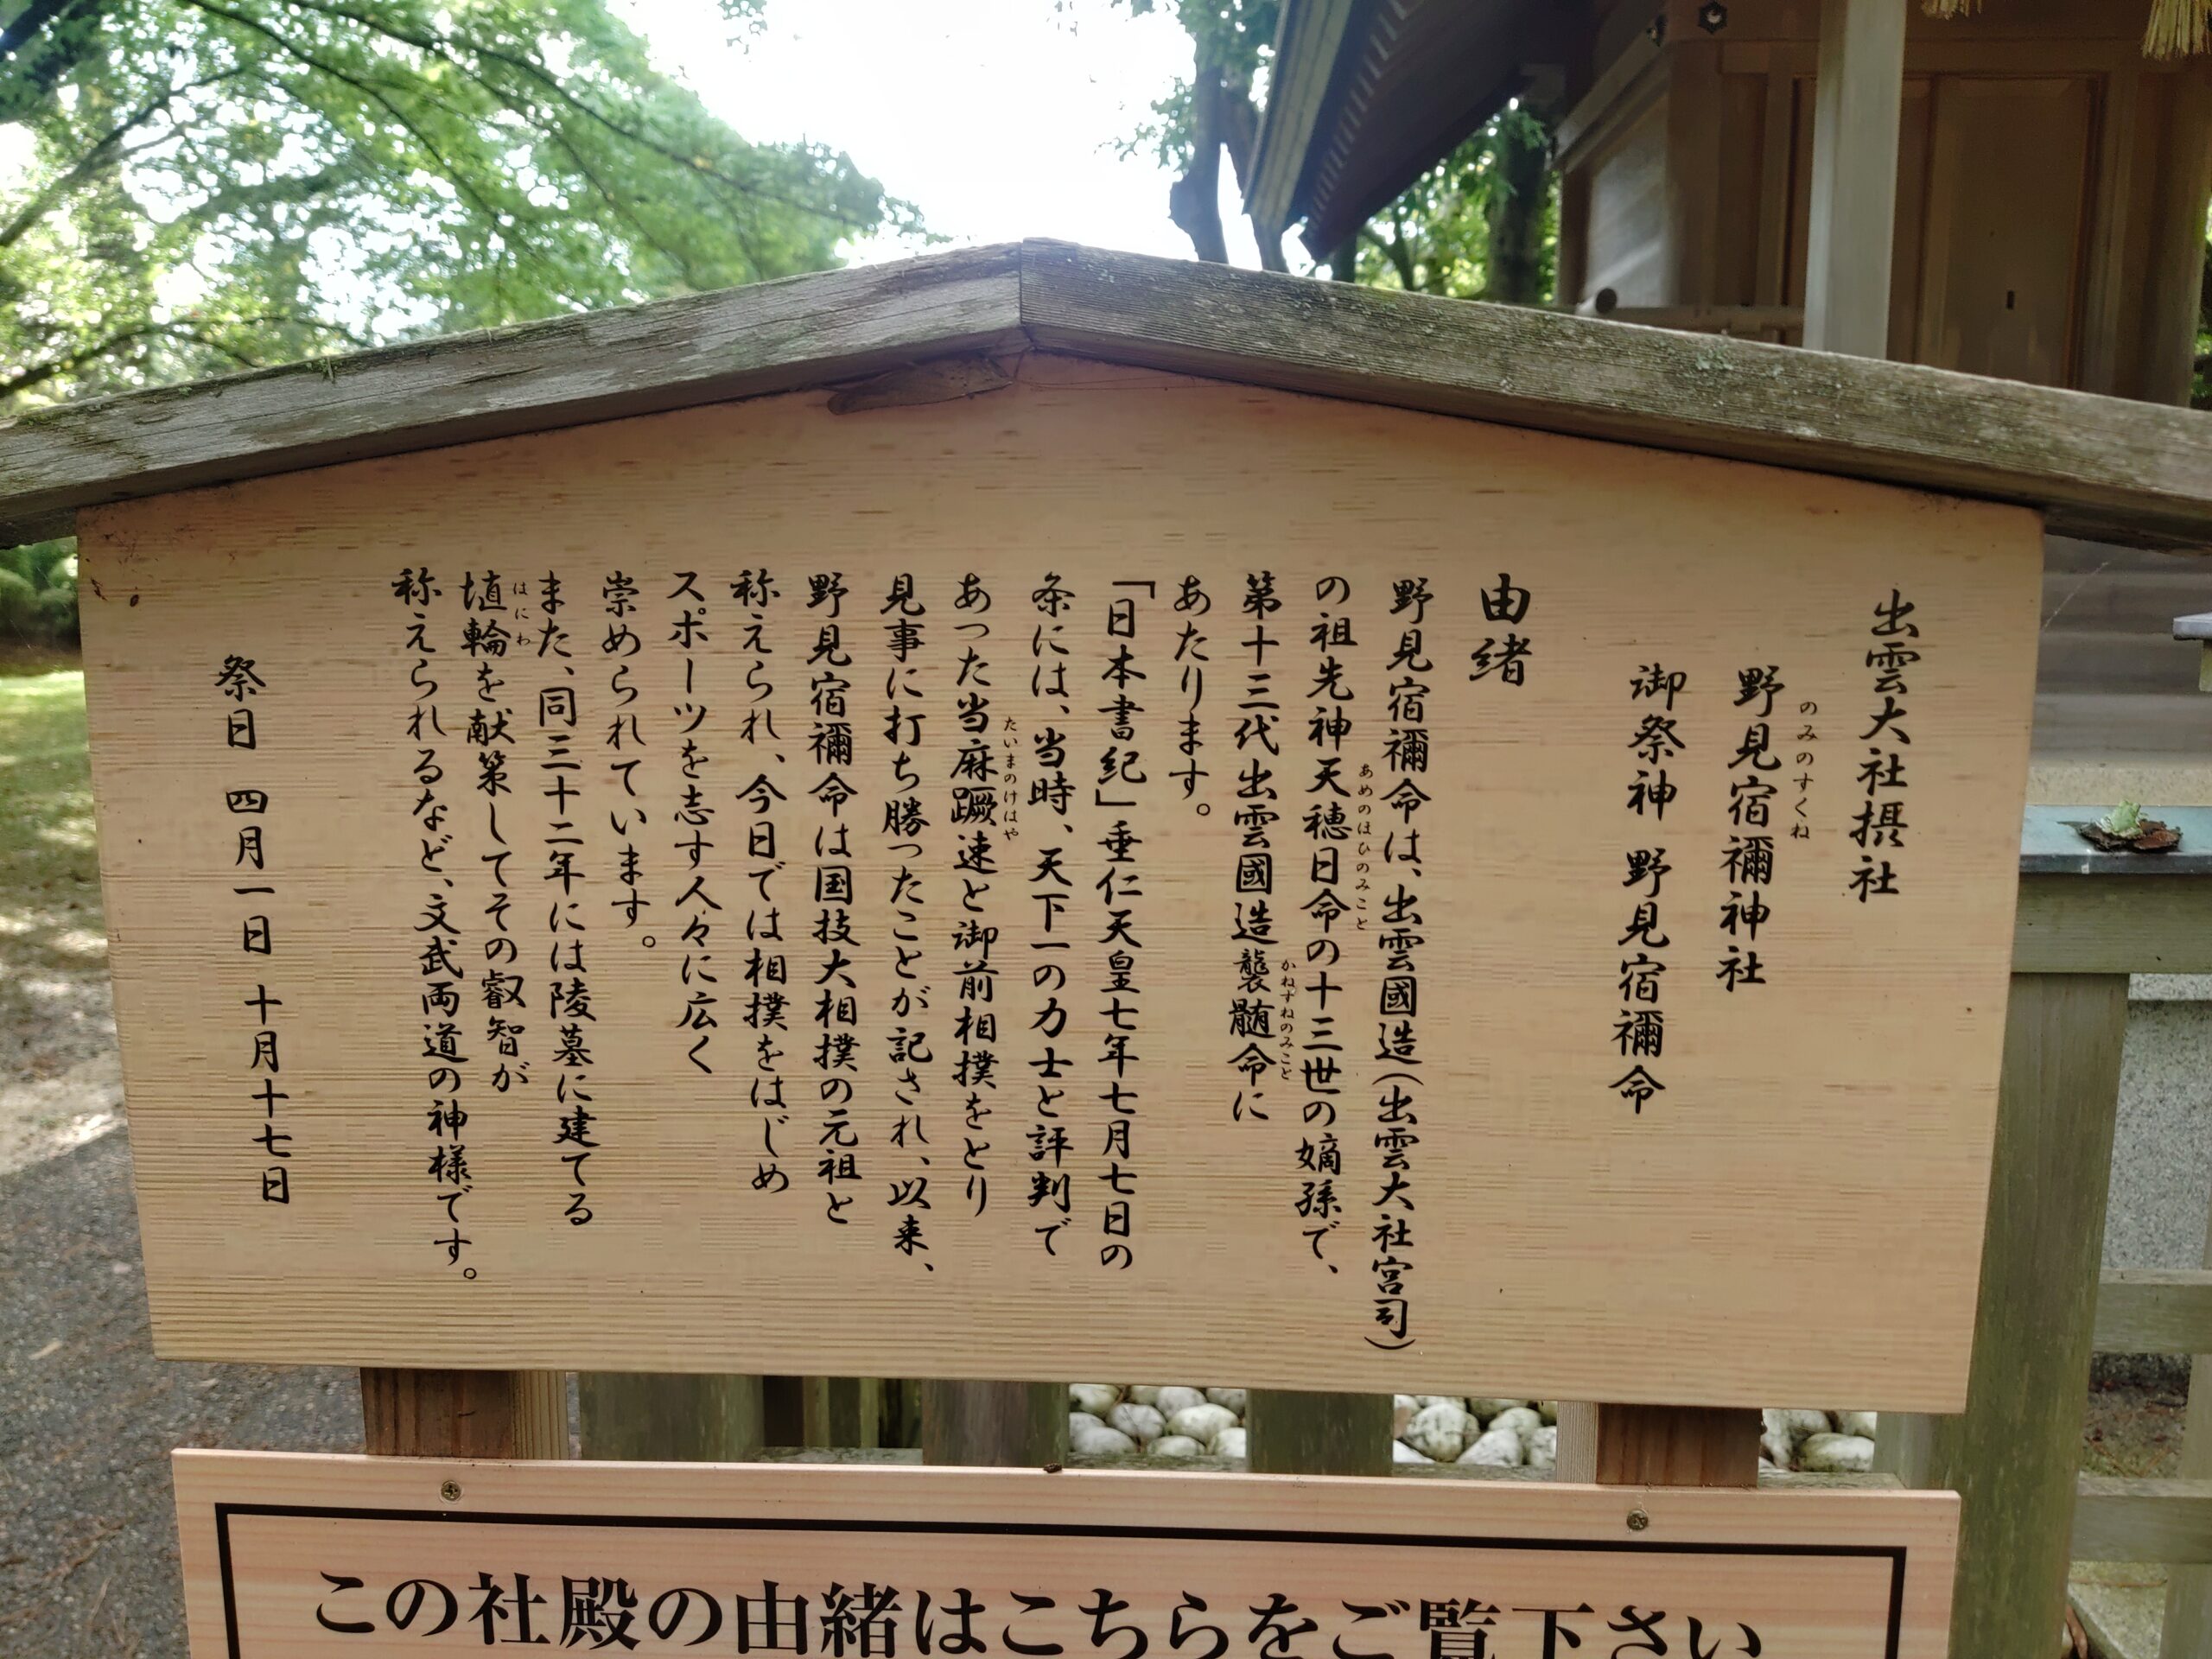 出雲大社摂社
野見宿禰神社
のみのすくね
御祭神 野見宿禰命
由緒
野見宿禰命は、出雲國造(出雲大社宮司)
の祖先神天穂日命の十三世の嫡孫で、
あめのほひのみこと
第十三代出雲國造襲髄命に
かねすねのみこと
あたります。
「日本書紀」垂仁天皇七年七月七日の
条には、当時、天下一の力士と評判で
あった当麻蹶速と御前相撲をとり
たいまのけはや
見事に打ち勝ったことが記され、以来、
野見宿禰命は国技大相撲の元祖と
称えられ、今日では相撲をはじめ
スポーツを志す人々に広く
崇められています。
また、同三十二年には陵墓に建てる
埴輪を献策してその叡智が
はにわ
称えられるなど、文武両道の神様です。
祭日 四月一日 十月十七日
この社殿の由緒はこちらをご覧下さい